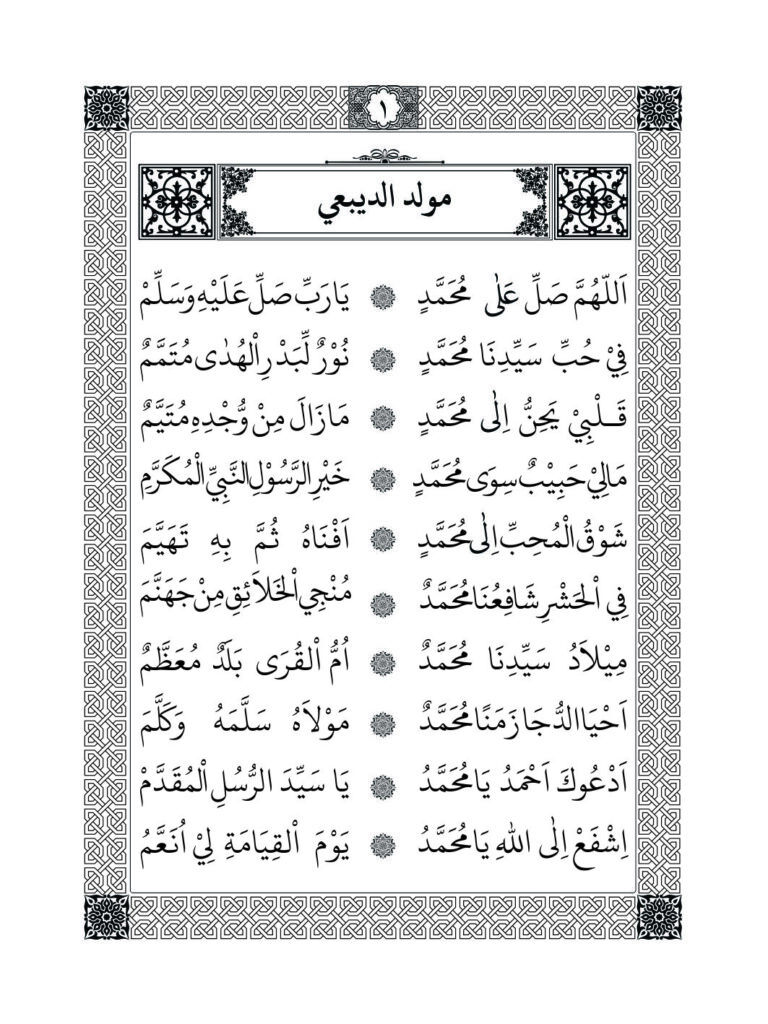 ١
مولد الديبعي
اَللّٰهُمَّ صَلِّ عَلٰى مُحَمَّدٍ ۞ يَارَبِّ صَلِّ عَلَيْهِ وَسَلِّمْ
فِيْ حُبِّ سَيِّدِنَا مُحَمَّدٍ ۞ نُوْرٌ لِّبَدْرِ الْهُدٰى مُتَمَّمٌ
قَلْبِيْ يَحِنُّ اِلٰى مُحَمَّدٍ ۞ مَازَالَ مِنْ وُّجْدِهِ مُتَيَّمٌ
مَالِيْ حَبِيْبٌ سِوَى مُحَمَّدٍ ۞ خَيْرِ الرَّسُوْلِ النَّبِيِّ الْمُكَرَّمِ
شَوْقُ الْمُحِبِّ اِلٰى مُحَمَّدٍ ۞ اَفْنَاهُ ثُمَّ بِهِ تَهَيَّمَ
فِي الْحَشْرِ شَافِعُنَا مُحَمَّدٌ ۞ مُنْجِي الْخَلَائِقِ مِنْ جَهَنَّمَ
مِيْلَادُ سَيِّدِنَا مُحَمَّدٌ ۞ اُمُّ الْقُرَى بَلَدٌ مُعَظَّمٌ
اَحْيَا الدُّجَا زَمَنًا مُحَمَّدٌ ۞ مَوْلَاهُ سَلَّمَهُ وَكَلَّمَ
اَدْعُوكَ اَحْمَدُ يَا مُحَمَّدُ ۞ يَا سَيِّدَ الرُّسُلِ الْمُقَدَّمْ
اِشْفَعْ اِلٰى اللهِ يَا مُحَمَّدُ ۞ يَوْمَ الْقِيَامَةِ لِيْ اُنَعَّمُ